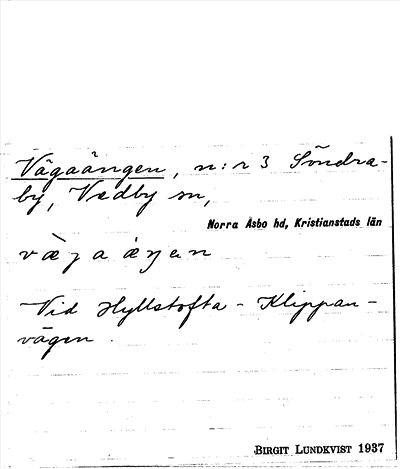 Vägaängen, n:r 3 Söndra-
by, Vedby sn,
Norra Åsbo hd, Kristianstads län
v æ̀ ɡ a æ ŋ e n
Vid Hyllstofta - Klippan-
vägen.
BIRGIT LUNDKVIST 1937